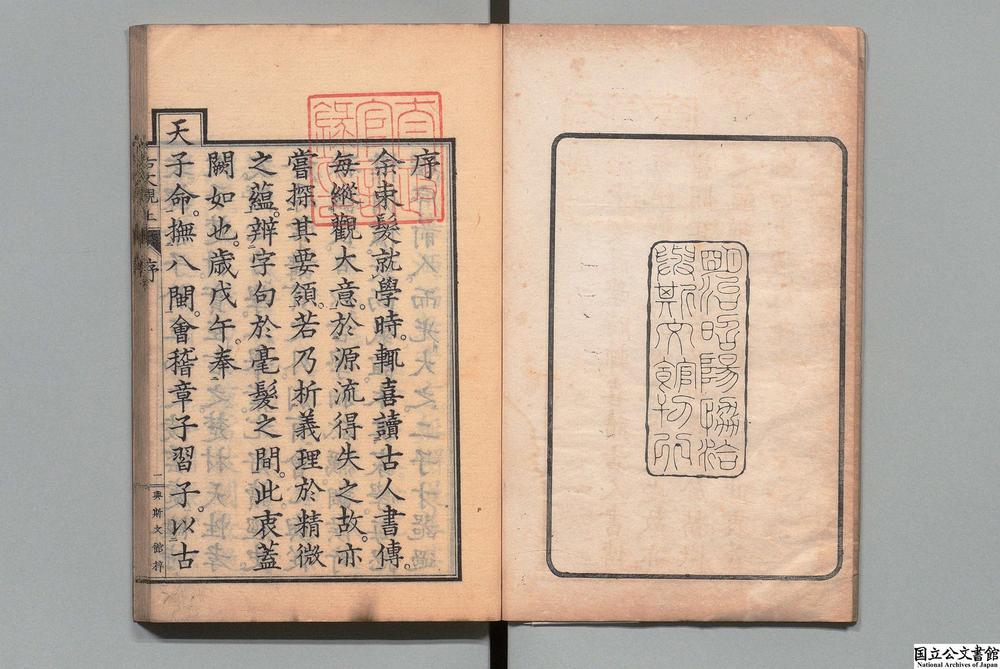 明治昭陽協洽
與斯文館刊行
序
余束髮就學時。輒喜讀古人書傳。
每縱觀大意。於源流得失之故。亦
嘗探其要領。若乃析義理於精微
之蘊。辯字句於毫髮之間。此衷蓋
闕如也。歲戊午。奉
天子命。撫八閩。會稽章子習子。以古
序
奥斯文館梓
国立公文書館
National Archives of Japan